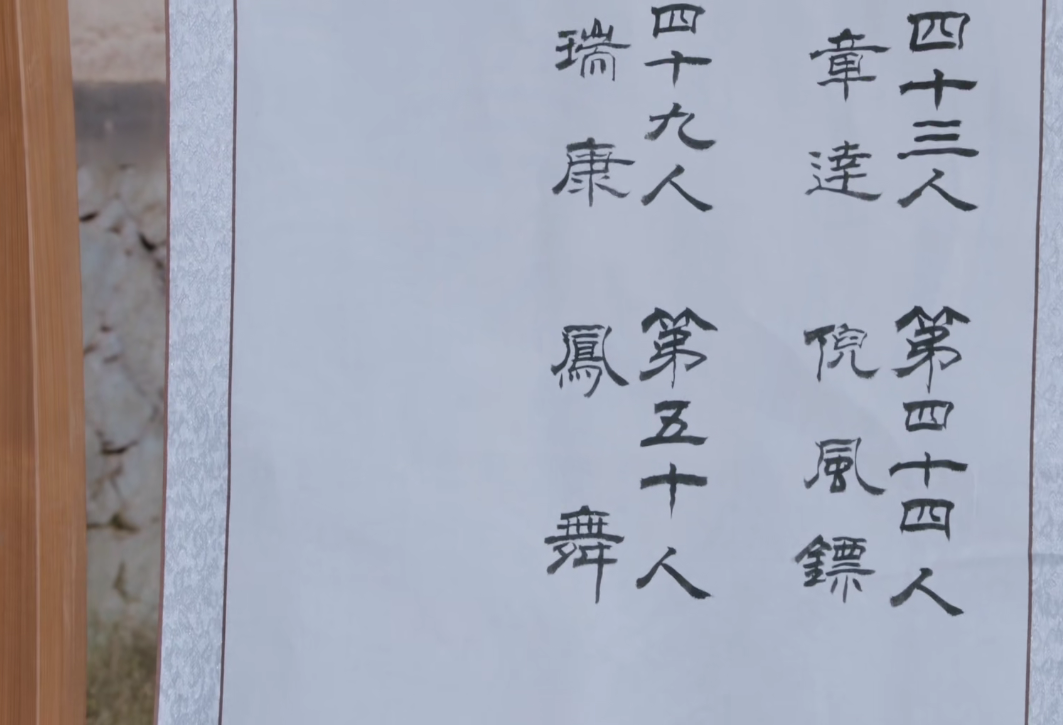 四十三人　第四十四人
章達　倪風鏢
四十九人　第五十人
瑞康　鳳舞